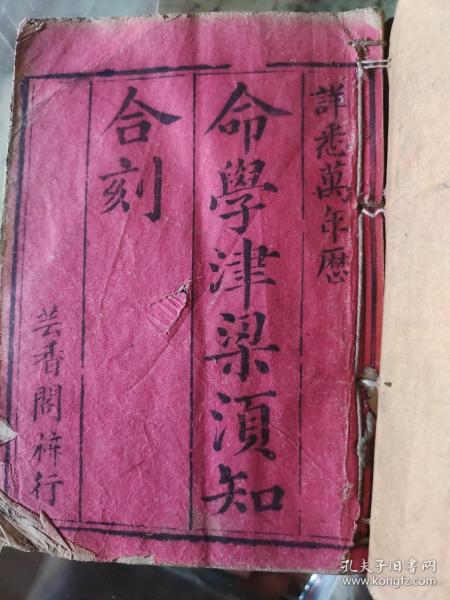 詳悉萬年厯
命學津梁須知
合刻
芸香閣梓行
孔夫子旧书网
www.kongfz.com